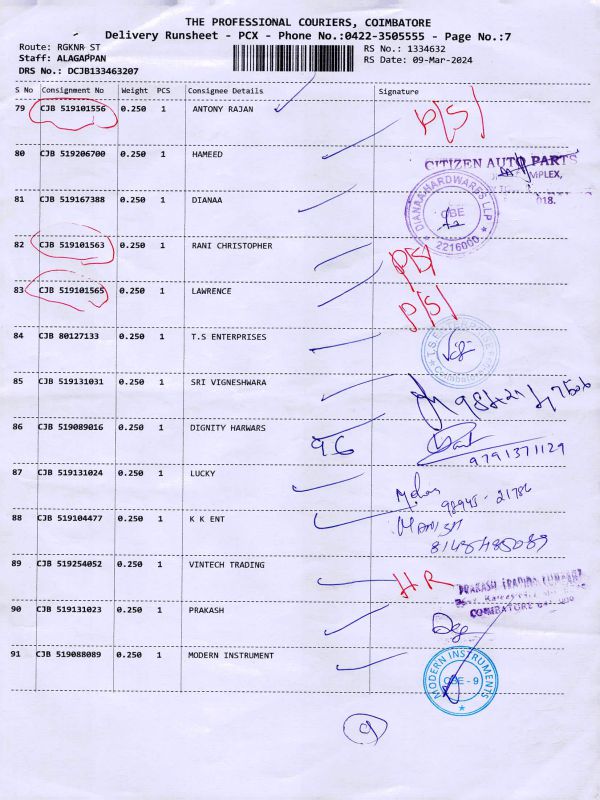 THE PROFESSIONAL COURIERS, COIMBATORE
Delivery Runsheet - PCX - Phone No.:0422-3505555 - Page No.:7
Route: RGKNR ST
RS No.: 1334632
Staff: ALAGAPPAN
RS Date: 09-Mar-2024
DRS No.: DCJB133463207
S No Consignment No Weight PCS Consignee Details Signature
79 CJB 519101556 0.250 1 ANTONY RAJAN P/S/
80 CJB 519206700 0.250 1 HAMEED
CITIZEN AUTO PARTS
MPLEX,
018.
81 CJB 519167388 0.250 1 DIANAA
DIANAA HARDWARES LLP
CBE
2216000
82 CJB 519101563 0.250 1 RANI CHRISTOPHER P/S/
83 CJB 519101565 0.250 1 LAWRENCE P/S/
84 CJB 80127133 0.250 1 T.S ENTERPRISES
T.S.ENTERPRISES
Coimbatore
85 CJB 519131031 0.250 1 SRI VIGNESHWARA
86 CJB 519089016 0.250 1 DIGNITY HARWARS 96
9791371129
87 CJB 519131024 0.250 1 LUCKY
98945-21786
88 CJB 519104477 0.250 1 K K ENT
8148485089
89 CJB 519254052 0.250 1 VINTECH TRADING HR
PRAKASH TRADING COMPANY
COIMBATORE
90 CJB 519131023 0.250 1 PRAKASH
91 CJB 519088089 0.250 1 MODERN INSTRUMENT
MODERN INSTRUMENTS
CBE - 9
9